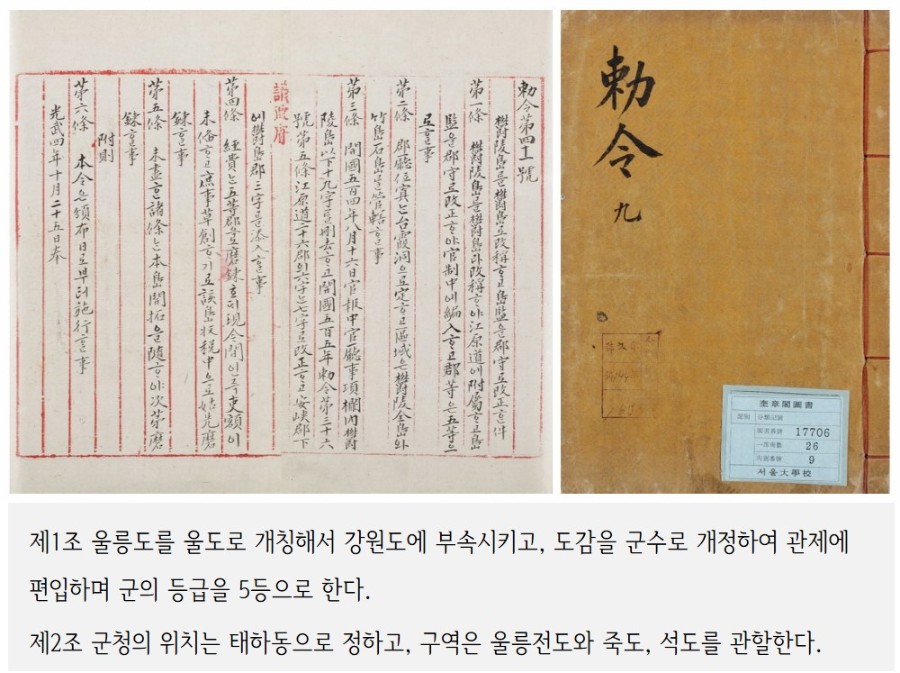 勅令第四十一號
欝陵島를欝島로改稱ᄒᆞ고島監을郡守로改正ᄒᆞᆫ件
第一條 欝陵島를欝島라改稱ᄒᆞ야江原道에附屬ᄒᆞ고島
監을郡守로改正ᄒᆞ야官制中에編入ᄒᆞ고郡等은五等으
로ᄒᆞᆯ事
第二條 郡廳位寘ᄂᆞᆫ台霞洞으로定ᄒᆞ고區域은欝陵全島와
竹島石島를管轄ᄒᆞᆯ事
第三條 開國五百四年八月十六日官報中官廳事項欄內欝
陵島以下十九字를刪去ᄒᆞ고開國五百五年勅令第三十六
號第五條江原道二十六郡의六字ᄂᆞᆫ七字로改正ᄒᆞ고安峽郡下
議政府
에欝島郡三字를添入ᄒᆞᆯ事
第四條 經費ᄂᆞᆫ五等郡으로磨鍊호ᄃᆡ現今間인즉吏額이
未備ᄒᆞ고庶事草創ᄒᆞ기로該島收稅中으로姑先磨
鍊ᄒᆞᆯ事
第五條 未盡ᄒᆞᆫ諸條ᄂᆞᆫ本島開拓을隨ᄒᆞ야次第磨
鍊ᄒᆞᆯ事
附則
第六條 本令은頒布日로부터施行ᄒᆞᆯ事
光武四年十月二十五日奉
勅令 九
奎章閣圖書
17706
26
9
서울大學校
제1조 울릉도를 울도로 개칭해서 강원도에 부속시키고, 도감을 군수로 개정하여 관제에
편입하며 군의 등급을 5등으로 한다.
제2조 군청의 위치는 태하동으로 정하고, 구역은 울릉전도와 죽도, 석도를 관할한다.